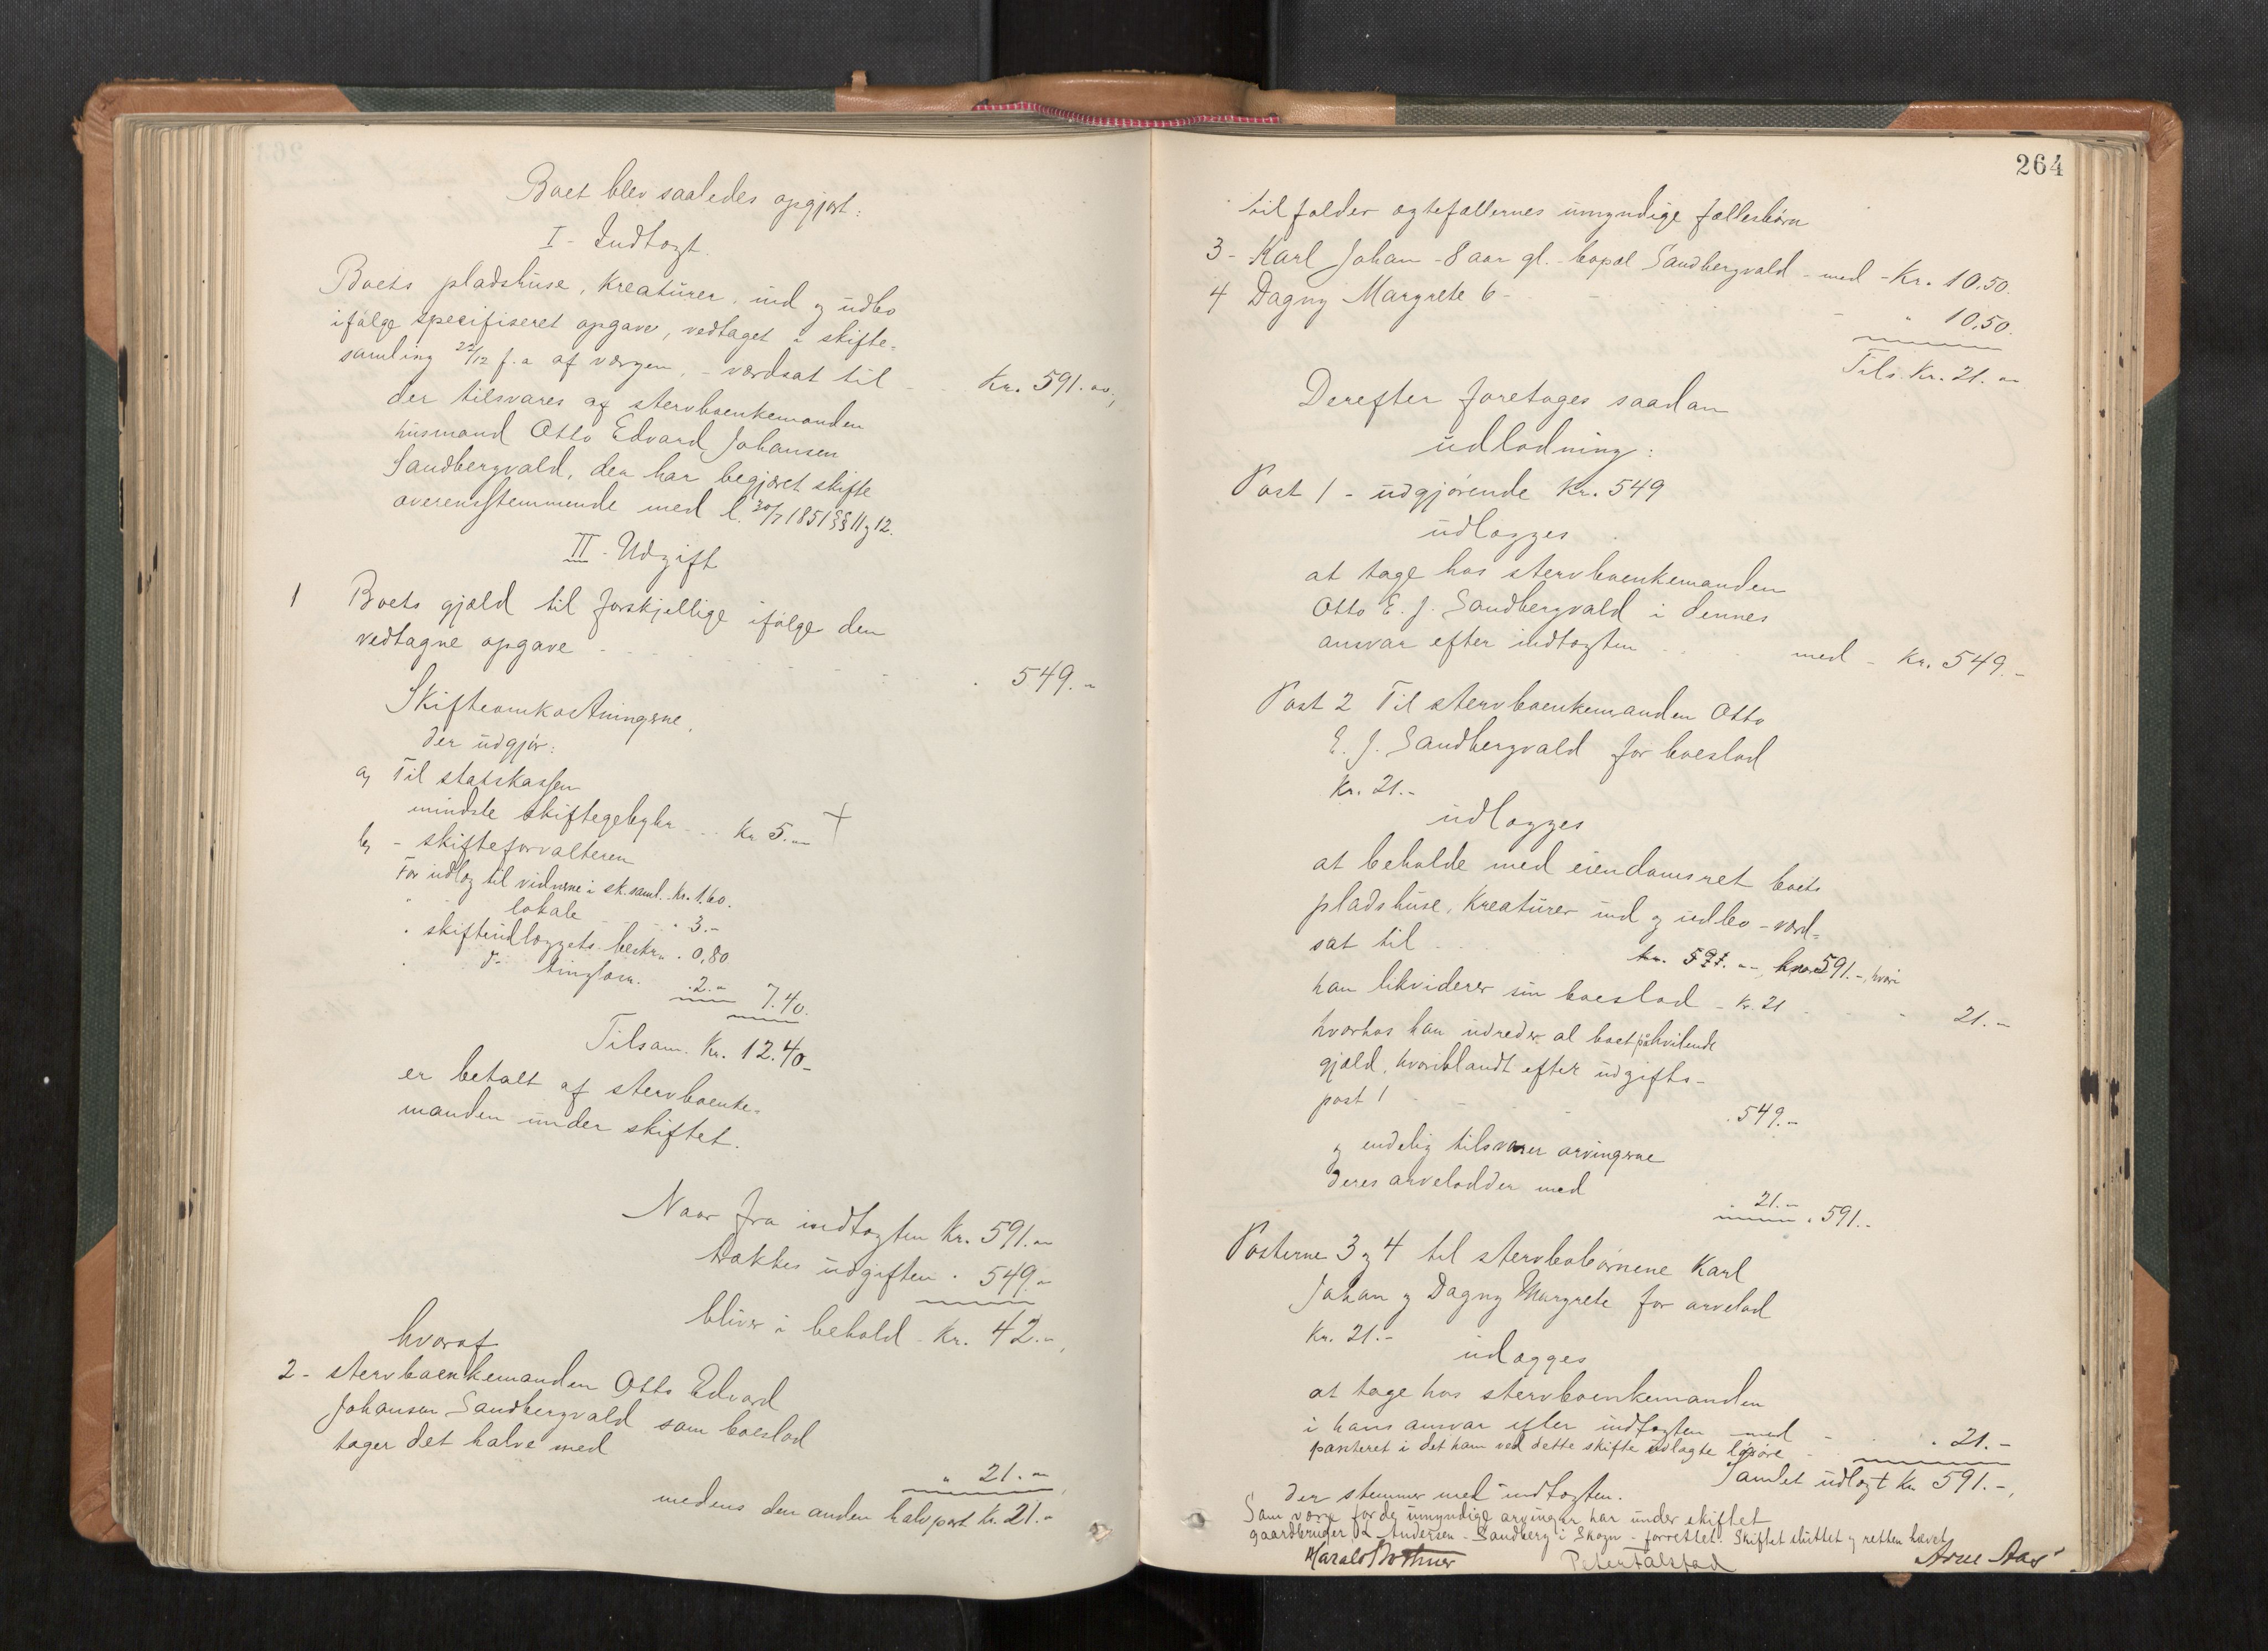 Boet blev saaledes opgjort:
I - Indtægt.
Boets pladshuse, kreaturer, ind og udbo
ifølge specifiseret opgave, vedtaget i skifte-
samling 22/12 f.a. af værgen, - værdsat til - - Kr. 591.-,
der tilsvares af stervboenkemanden
husmand Otto Edvard Johansen
Sandbergvald, der har begjæret skifte
overensstemmende med l. 30/7 1851 §§ 11 og 12.
II - Udgift
1 Boets gjæld til forskjellige ifølge den
vedtagne opgave - - - - - 549.-
Skifteomkostningerne,
der udgjør:
a, Til statskassen
mindste skiftegebyhr - - Kr 5.-
b, - skifteforvalteren
For udlæg til vidnerne i sk.saml. Kr. 1.60.
" - lokale - - - " 3.-
" skifteudlæggets beskr. " 0,80
" do tinglæsn. " 2.- 7.40.
Tilsam. Kr. 12.40-
er betalt af stervboenke-
manden under skiftet.
Naar fra indtægten Kr. 591.-
trækkes udgiften " 549.-
bliver i behold - Kr. 42.-,
hvoraf
2 - stervboenkemanden Otto Edvard
Johansen Sandbergvald som boeslod
tager det halve med
" 21.-
medens den anden halvpart Kr. 21.-
264
tilfalder ægtefællernes umyndige fællesbørn
3 - Karl Johan - 8 aar gl. - bopæl Sandbergvald - med - Kr. 10.50.
4 Dagny Margrete 6 - - - - - " 10,50.
Tils. Kr. 21.-
Derefter foretages saadan
udlodning:
Post 1 - udgjørende Kr. 549
udlægges
at tage hos stervboenkemanden
Otto E. J. Sandbergvald i dennes
ansvar efter indtægten - - - med - Kr. 549.-
Post 2 Til stervboenkemanden Otto
E. J. Sandbergvald for boeslod
Kr. 21.-
udlægges
at beholde med eiendomsret boets
pladshuse, kreaturer ind og udbo - værd-
sat til - - 591.-, hvori
han likviderer sin boeslod - Kr. 21 - - - 21.-
hvorhos han udreder al boet påhvilende
gjæld, hvoriblandt efter udgifts-
post 1 - - - " 549.-
og endelig tilsvarer arvingerne
deres arvelodder med
" 21.- " 591.-
Posterne 3 og 4 til stervbobørnene Karl
Johan og Dagny Margrete for arvelod
Kr. 21.-
udlægges
at tage hos stervboenkemanden
i hans ansvar efter indtægten med - " 21.-
panteret i det ham ved dette skifte udlagte løsøre -
Samlet udlægt Kr. 591.-,
der stemmer med indtægten.
Som værge for de umyndige arvinger har under skiftet
gaardbruger Andersen - Sandberg i Skogn - forrettet. Skiftet sluttet og retten hævet.
Harald Bothner Peter Falstad Arne Aas